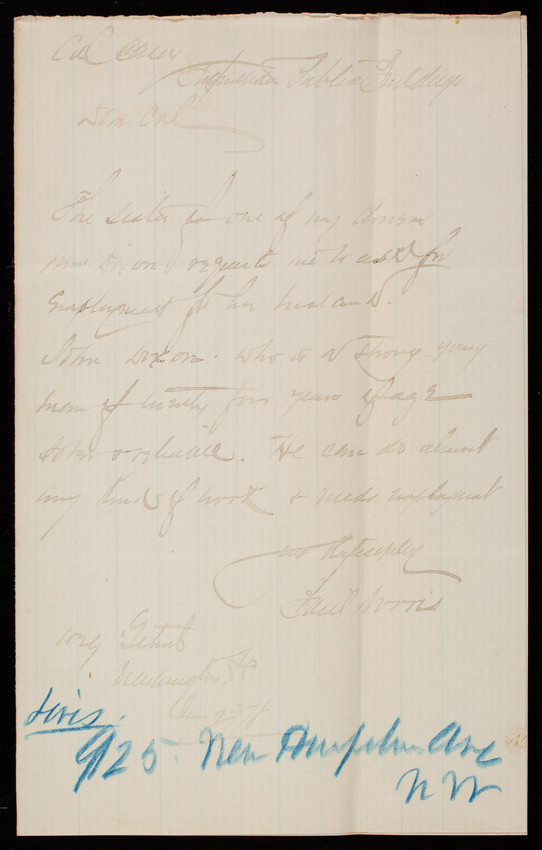 Col Casey
Public Buildings
Dear Col
The sister of one of my
Mrs Dixon requests me to ask for
Employment for her husband.
John Dixon. who is a strong young
man of twenty four years of age
sober & reliable. He can do almost
any kind of work & needs employment
Paul Norris
Washington DC
lives.
925. New Hampshire Ave
N W